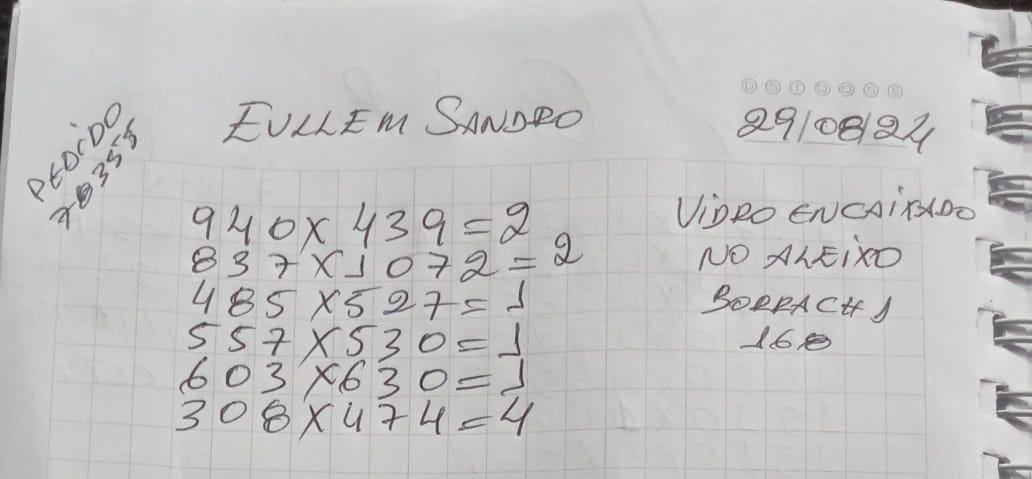 D S T Q Q S S
EULLEM SANDRO
29/08/24
PEDIDO
70355
940X439=2
837X1072=2
485X527=1
557X530=1
603X630=1
308X474=4
VIDRO ENCAIXADO
NO ALEIXO
BORRACH 1
160